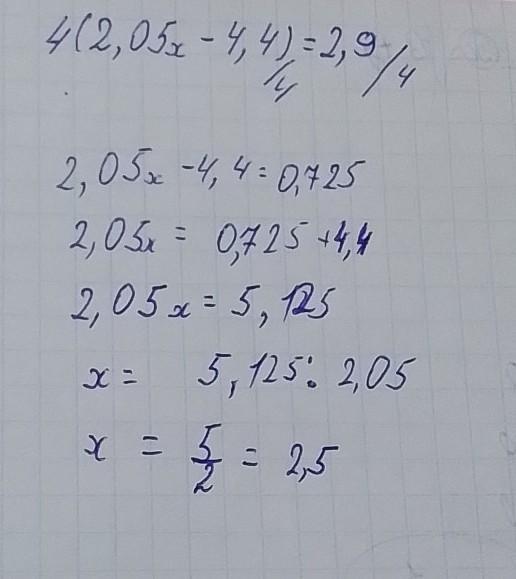 4(2,05x - 4,4) = 2,9
/4 /4
2,05x - 4,4 = 0,725
2,05x = 0,725 + 4,4
2,05x = 5,125
x = 5,125 : 2,05
x = 5/2 = 2,5